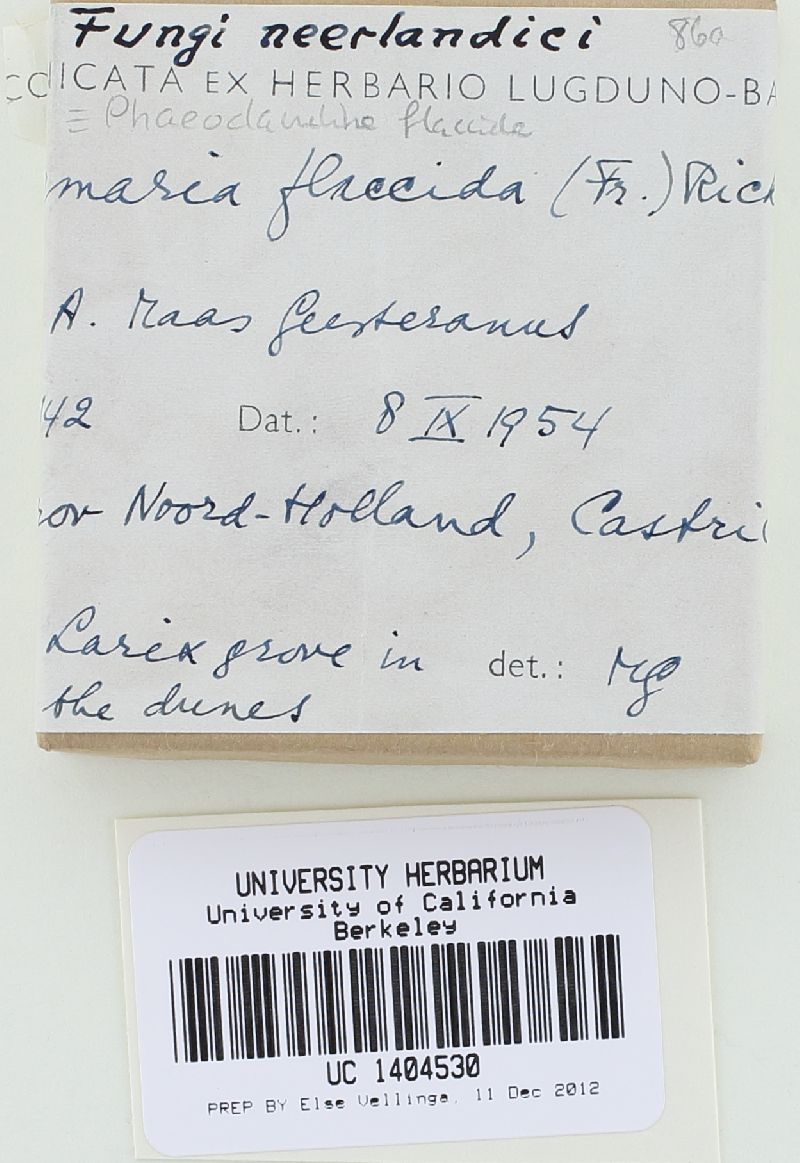 Fungi neerlandici 860
CCICATA EX HERBARIO LUGDUNO-BA
≡ Phaeoclavulina flaccida
maria flaccida (Fr.) Rick
A. Maas Geesteranus
42 Dat.: 8 IX 1954
ov Noord-Holland, Castri
Larix grove in det.: Mg
the dunes
UNIVERSITY HERBARIUM
University of California
Berkeley
UC 1404530
PREP BY Else Vellinga, 11 Dec 2012